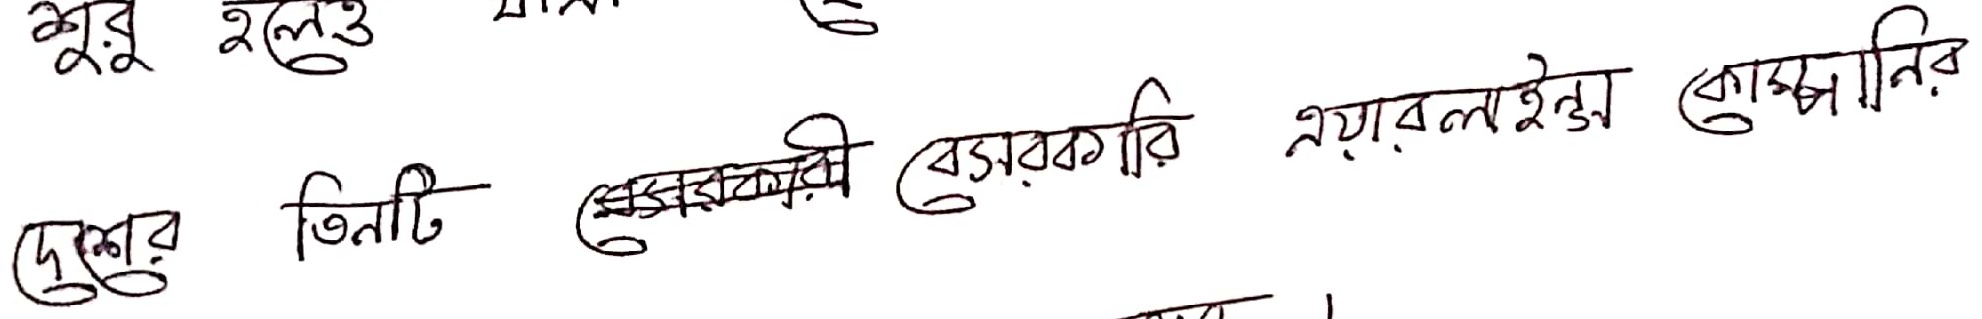 শুরু হলেও
দেশের তিনটি বেসরকারি এয়ারলাইন্স কোম্পানির